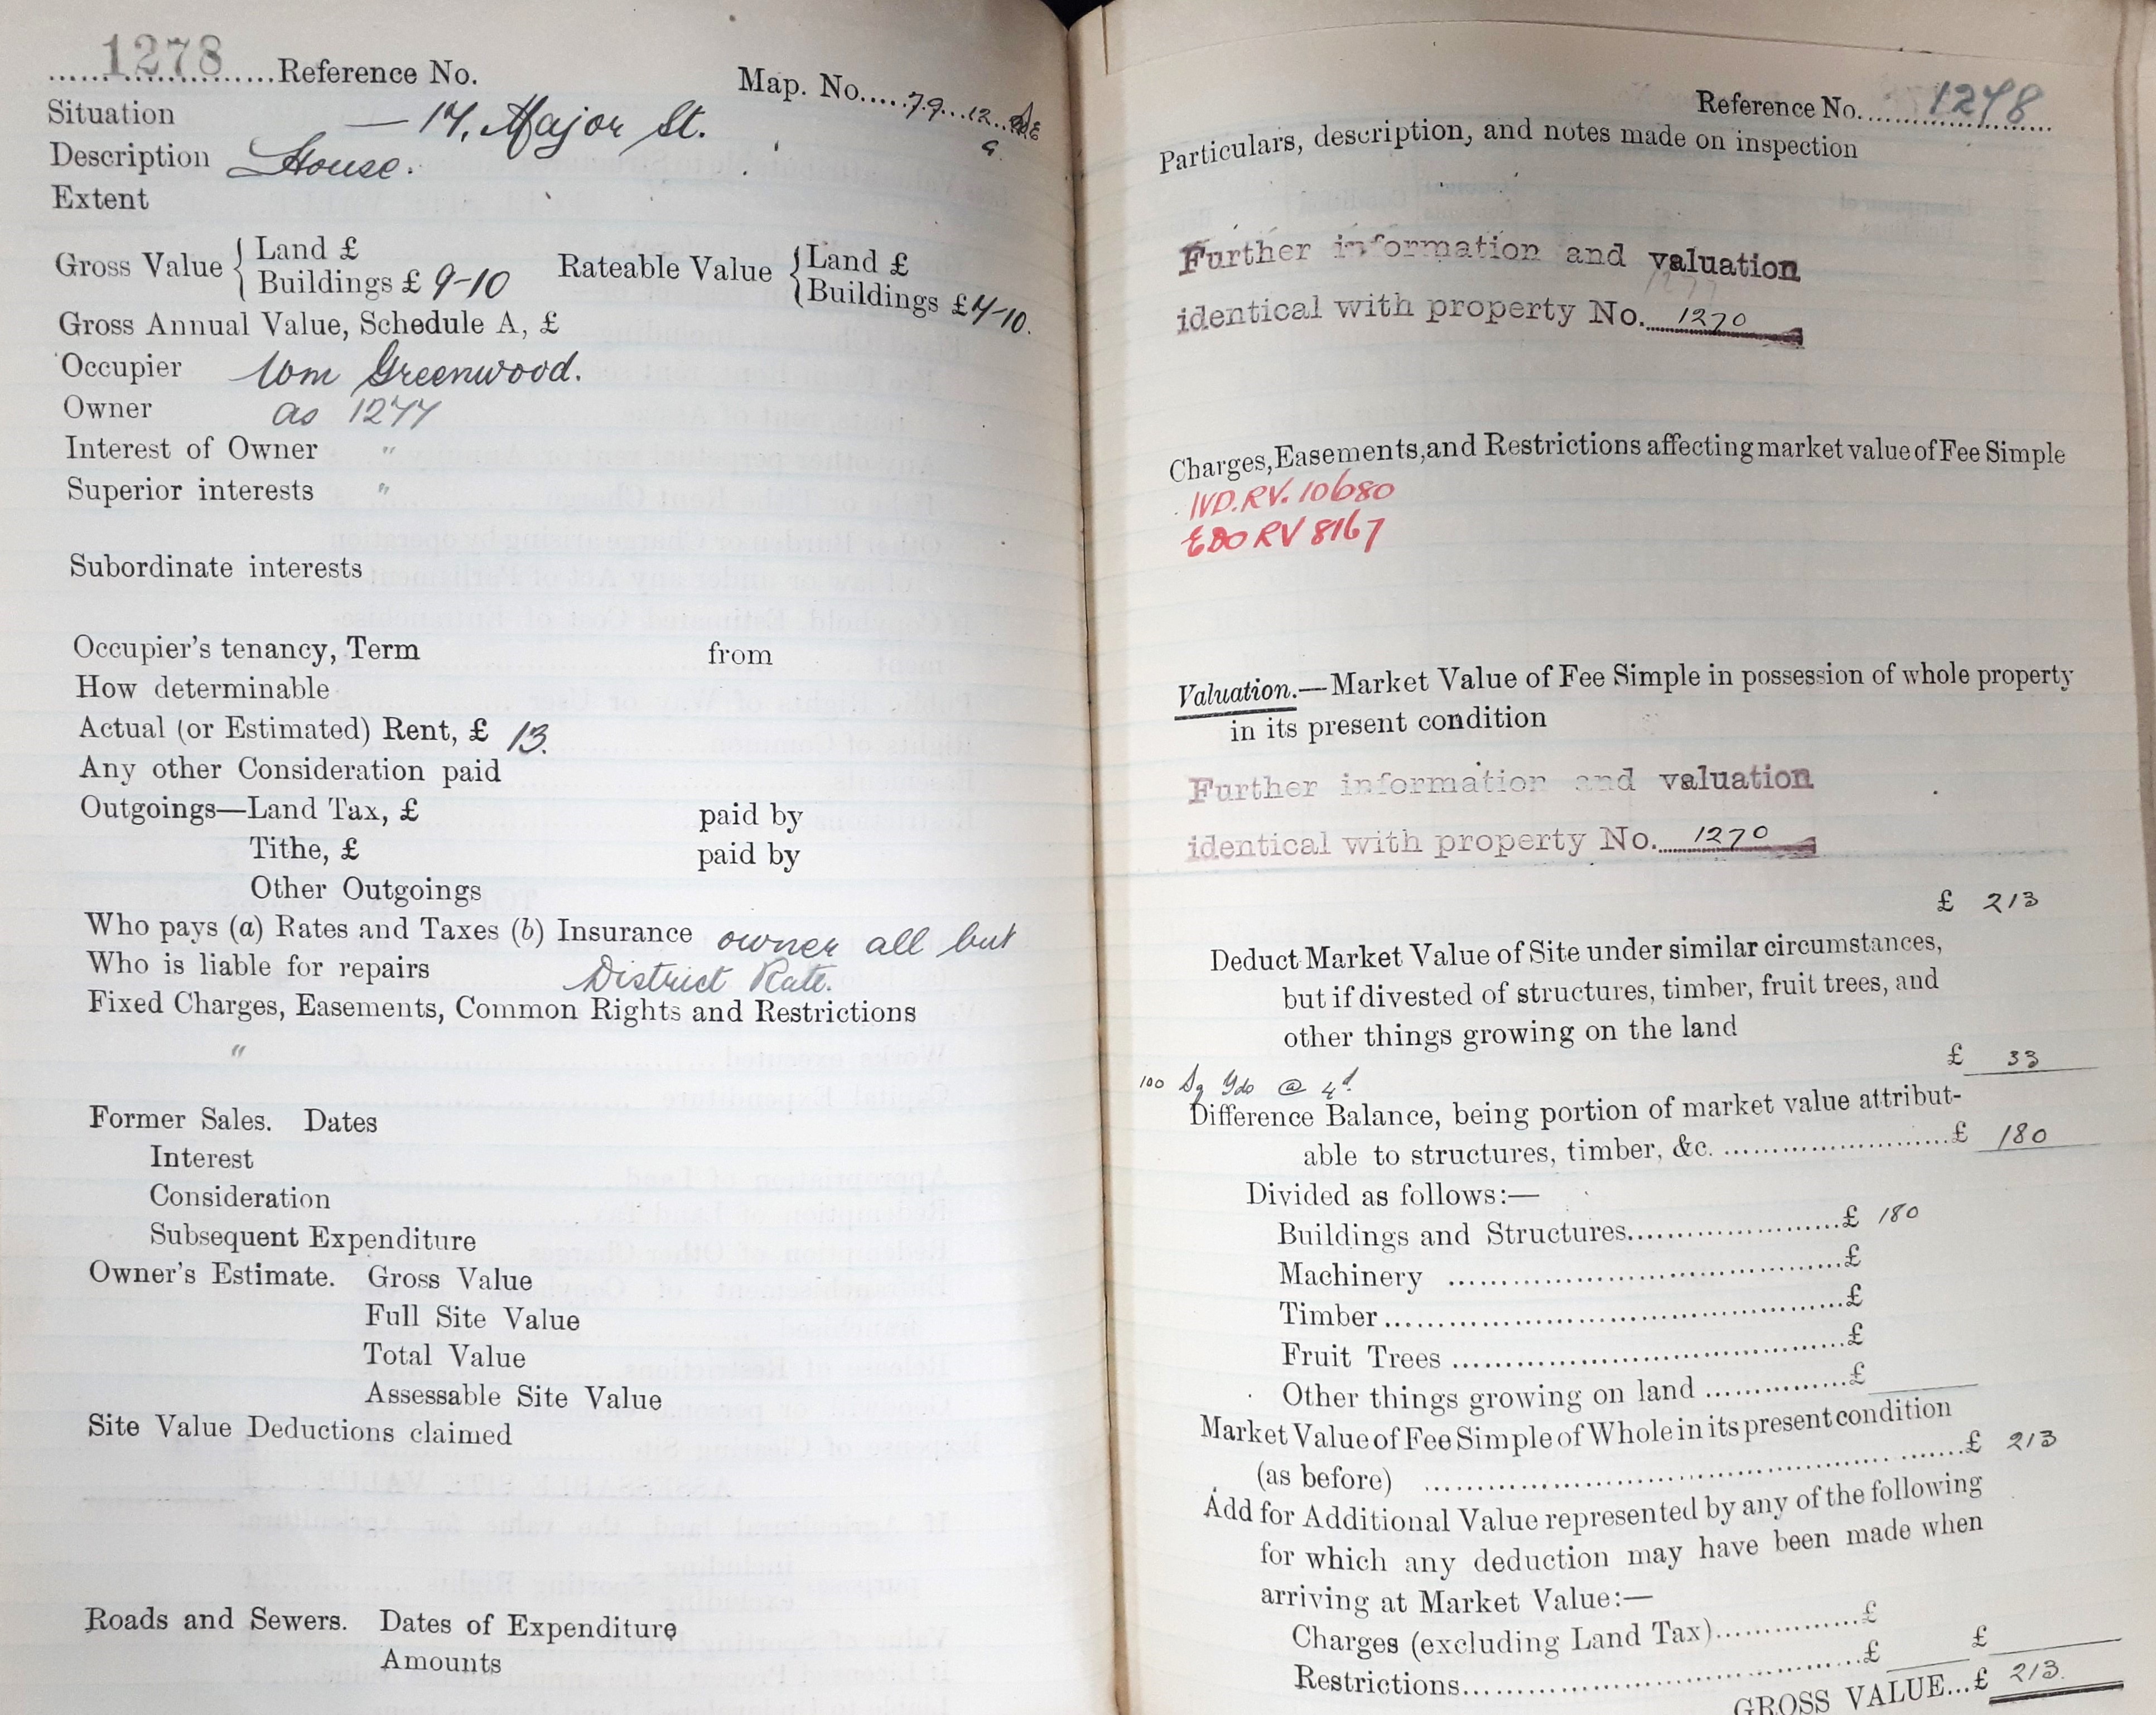 1278 Reference No. Map. No. 79. 12.
Situation — 17, Major St.
Description House.
Extent
Gross Value { Land £ Rateable Value { Land £
Buildings £ 9-10 Buildings £7-10.
Gross Annual Value, Schedule A, £
Occupier Wm Greenwood.
Owner as 1277
Interest of Owner "
Superior interests "
Subordinate interests
Occupier's tenancy, Term from
How determinable
Actual (or Estimated) Rent, £ 13.
Any other Consideration paid
Outgoings—Land Tax, £ paid by
Tithe, £ paid by
Other Outgoings
Who pays (a) Rates and Taxes (b) Insurance owner all but
Who is liable for repairs District Rate.
Fixed Charges, Easements, Common Rights and Restrictions
"
Former Sales. Dates
Interest
Consideration
Subsequent Expenditure
Owner's Estimate. Gross Value
Full Site Value
Total Value
Assessable Site Value
Site Value Deductions claimed
Roads and Sewers. Dates of Expenditure
Amounts
Reference No. 1278
Particulars, description, and notes made on inspection
Further information and valuation
1277
identical with property No. 1270
Charges, Easements, and Restrictions affecting market value of Fee Simple
IVD. RV. 10680
EDO RV 8167
Valuation.—Market Value of Fee Simple in possession of whole property
in its present condition
Further information and valuation
identical with property No. 1270
£ 213
Deduct Market Value of Site under similar circumstances,
but if divested of structures, timber, fruit trees, and
other things growing on the land
£ 33
100 Sq Yds @ 4d.
Difference Balance, being portion of market value attribut-
able to structures, timber, &c. £ 180
Divided as follows:—
Buildings and Structures £ 180
Machinery £
Timber £
Fruit Trees £
Other things growing on land £
Market Value of Fee Simple of Whole in its present condition
(as before) £ 213
Add for Additional Value represented by any of the following
for which any deduction may have been made when
arriving at Market Value:—
Charges (excluding Land Tax) £
Restrictions £ £
GROSS VALUE...£ 213.